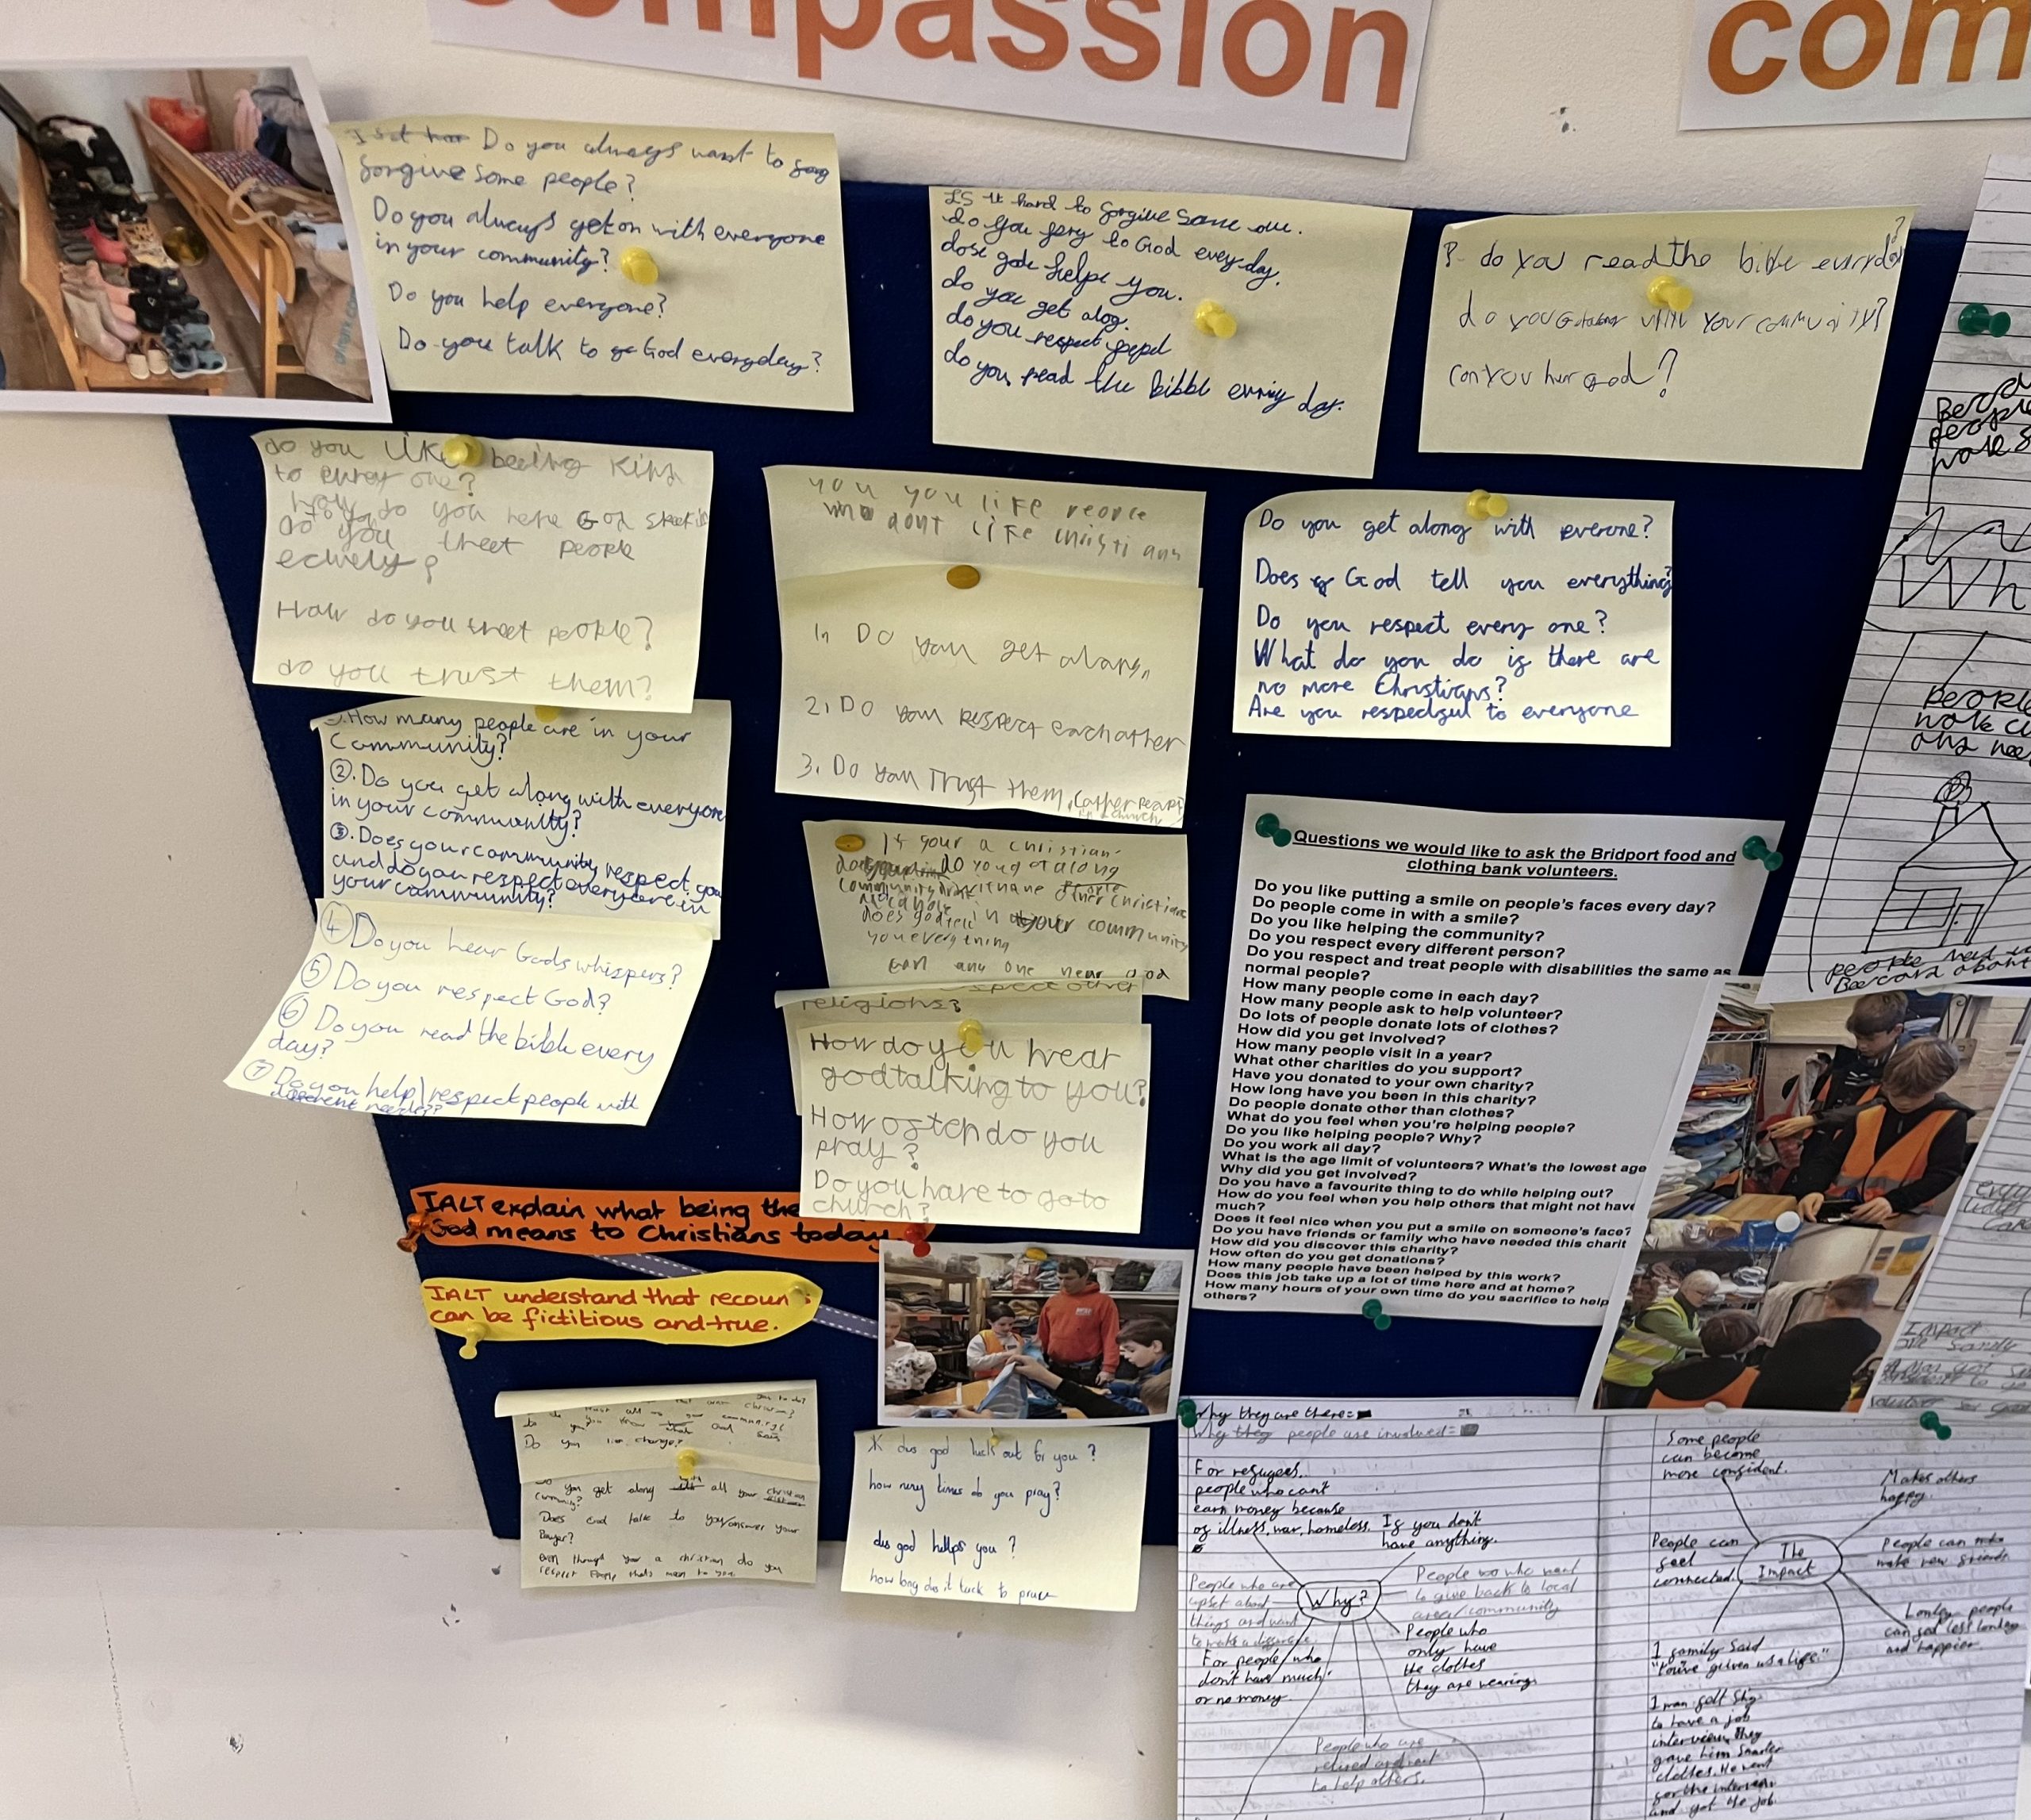 compassion
com
Do you always want to
forgive some people?
Do you always get on with everyone
in your community?
Do you help everyone?
Do you talk to God everyday?
IS it hard to forgive some one.
do you pery to God every day.
dose gode helpe you.
do you get alog.
do you respect
do you read the bibbl day.
do you read the bible everyday?
do you with your community?
can you her god?
do you like beeing kind
to evrey one?
how do you here God
do you threet people
How do you treet people?
do you trust them?
you you like people
who dont like christians
1. Do you get along,
2. Do you respect eachother
3. Do you Trust them. (other people
in church
Do you get along with everone?
Does God tell you everything?
Do you respect every one?
What do you do if there are
no more Christians?
Are you respectful to everyone
How many people are in your
Community?
②. Do you get along with everyone
in your community?
③. Does your community respect you
and do you respect everyone in
your community?
④ Do you hear Gods whispers?
⑤ Do you respect God?
⑥ Do you read the bible every
day?
⑦ Do you help\respect people with
different needs??
If your a christian
Do you get along
other christians
in your community
does god tell
you everything
can any one hear god
religions?
How do you hear
god talking to you?
How often do you
pray?
Do you have to go to
church?
Questions we would like to ask the Bridport food and
clothing bank volunteers.
Do you like putting a smile on people's faces every day?
Do people come in with a smile?
Do you like helping the community?
Do you respect every different person?
Do you respect and treat people with disabilities the same as
normal people?
How many people come in each day?
How many people ask to help volunteer?
Do lots of people donate lots of clothes?
How did you get involved?
How many people visit in a year?
What other charities do you support?
Have you donated to your own charity?
How long have you been in this charity?
Do people donate other than clothes?
What do you feel when you're helping people?
Do you like helping people? Why?
Do you work all day?
What is the age limit of volunteers? What's the lowest age
Why did you get involved?
Do you have a favourite thing to do while helping out?
How do you feel when you help others that might not have
much?
Does it feel nice when you put a smile on someone's face?
Do you have friends or family who have needed this charit
How did you discover this charity?
How often do you get donations?
How many people have been helped by this work?
Does this job take up a lot of time here and at home?
How many hours of your own time do you sacrifice to help
others?
IALT explain what being the
God means to Christians today
IALT understand that recoun
can be fictitious and true.
Do you like change?
you get along all your
Does God talk to you/answer your
Prayer?
even though your a christian do you
respect People thats mean to you
dus god luck out for you?
how meny times do you pray?
dus god hellps you?
how long dus it tack to
Why they are there=
Why they people are involved=
For refugees.
people who can't
earn money because
of illness, war, homeless.
If you don't
have anything.
People who are
upset about
things and want
to make a difference.
Why?
People who want
to give back to local
area/community
People who
only have
the clothes
they are wearing.
For people who
don't have much
or no money.
People who are
retired and want
to help others.
Some people
can become
more confident.
Makes others
happy.
People can
feel
connected.
The
Impact
People can make
make new friends
1 family said
"You've given us a life."
Lonley people
can feel less lonley
and happier.
1 man felt shy
to have a job
interview. They
gave him smarter
clothes. He went
for the interview
and got the job.
Wh
people
Impact